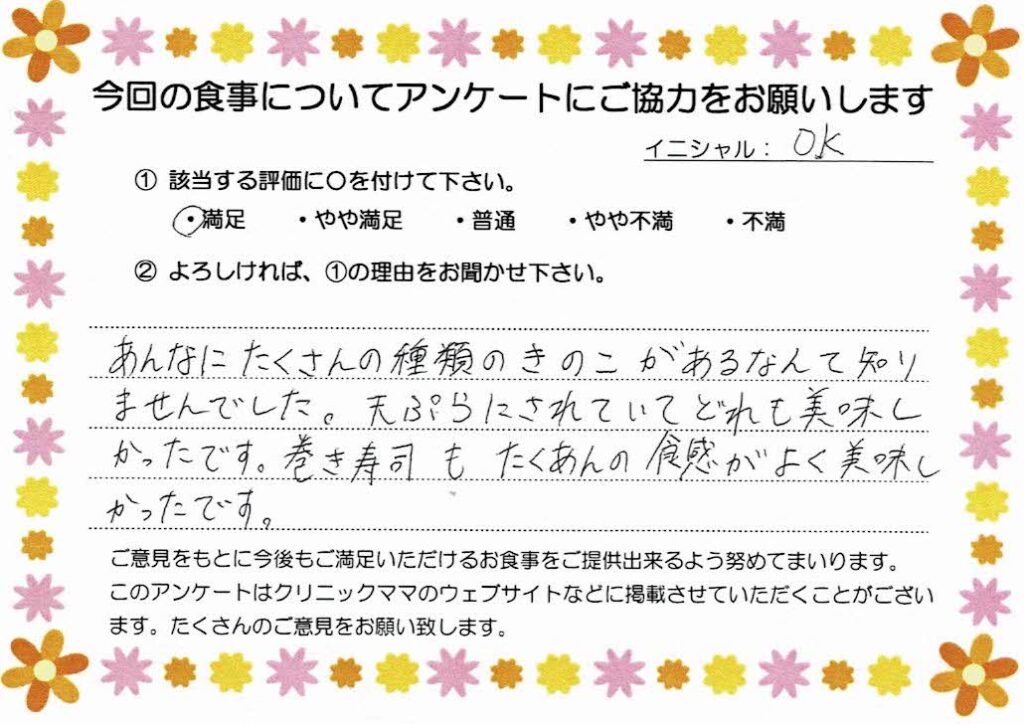 今回の食事についてアンケートにご協力をお願いします
イニシャル： OK
① 該当する評価に〇を付けて下さい。
・満足 ・やや満足 ・普通 ・やや不満 ・不満
② よろしければ、①の理由をお聞かせ下さい。
あんなにたくさんの種類のきのこがあるなんて知り
ませんでした。天ぷらにされていてどれも美味し
かったです。巻き寿司もたくあんの食感がよく美味し
かったです。
ご意見をもとに今後もご満足いただけるお食事をご提供出来るよう努めてまいります。
このアンケートはクリニックママのウェブサイトなどに掲載させていただくことがござい
ます。たくさんのご意見をお願い致します。